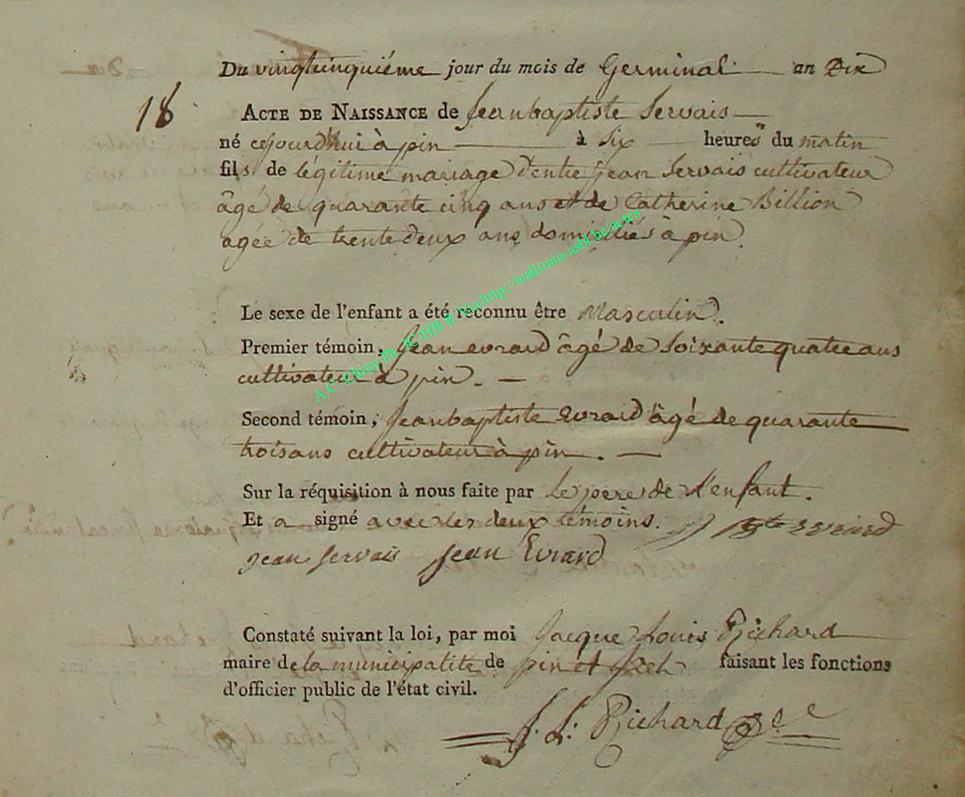 Du vingtcinquiéme jour du mois de Germinal an Dix
18
ACTE DE NAISSANCE de Jeanbaptiste Servais
né cejourdhui à pin à Six heures du matin
fils de légitime mariage D'entre jean Servais cultivateur
âgé de quarante cinq ans et de Catherine Billion
agée de trente deux ans domiciliés à pin
Le sexe de l'enfant a été reconnu être Masculin.
Premier témoin, Jean evrard âgé de Soixante quatre ans
cultivateur à pin.
Second témoin, Jeanbaptiste Evrard âgé de quarante
troisans cultivateur à pin.
Sur la réquisition à nous faite par Le pere de L'enfant.
Et a signé avec les deux témoins. J Bte evrard
jean servais jean Evrard
Constaté suivant la loi, par moi Jacque Louis Richard
maire de la municipalité de pin et faisant les fonctions
d'officier public de l'état civil.
J. L. Richard
http://wallonia-asbl.be/actes